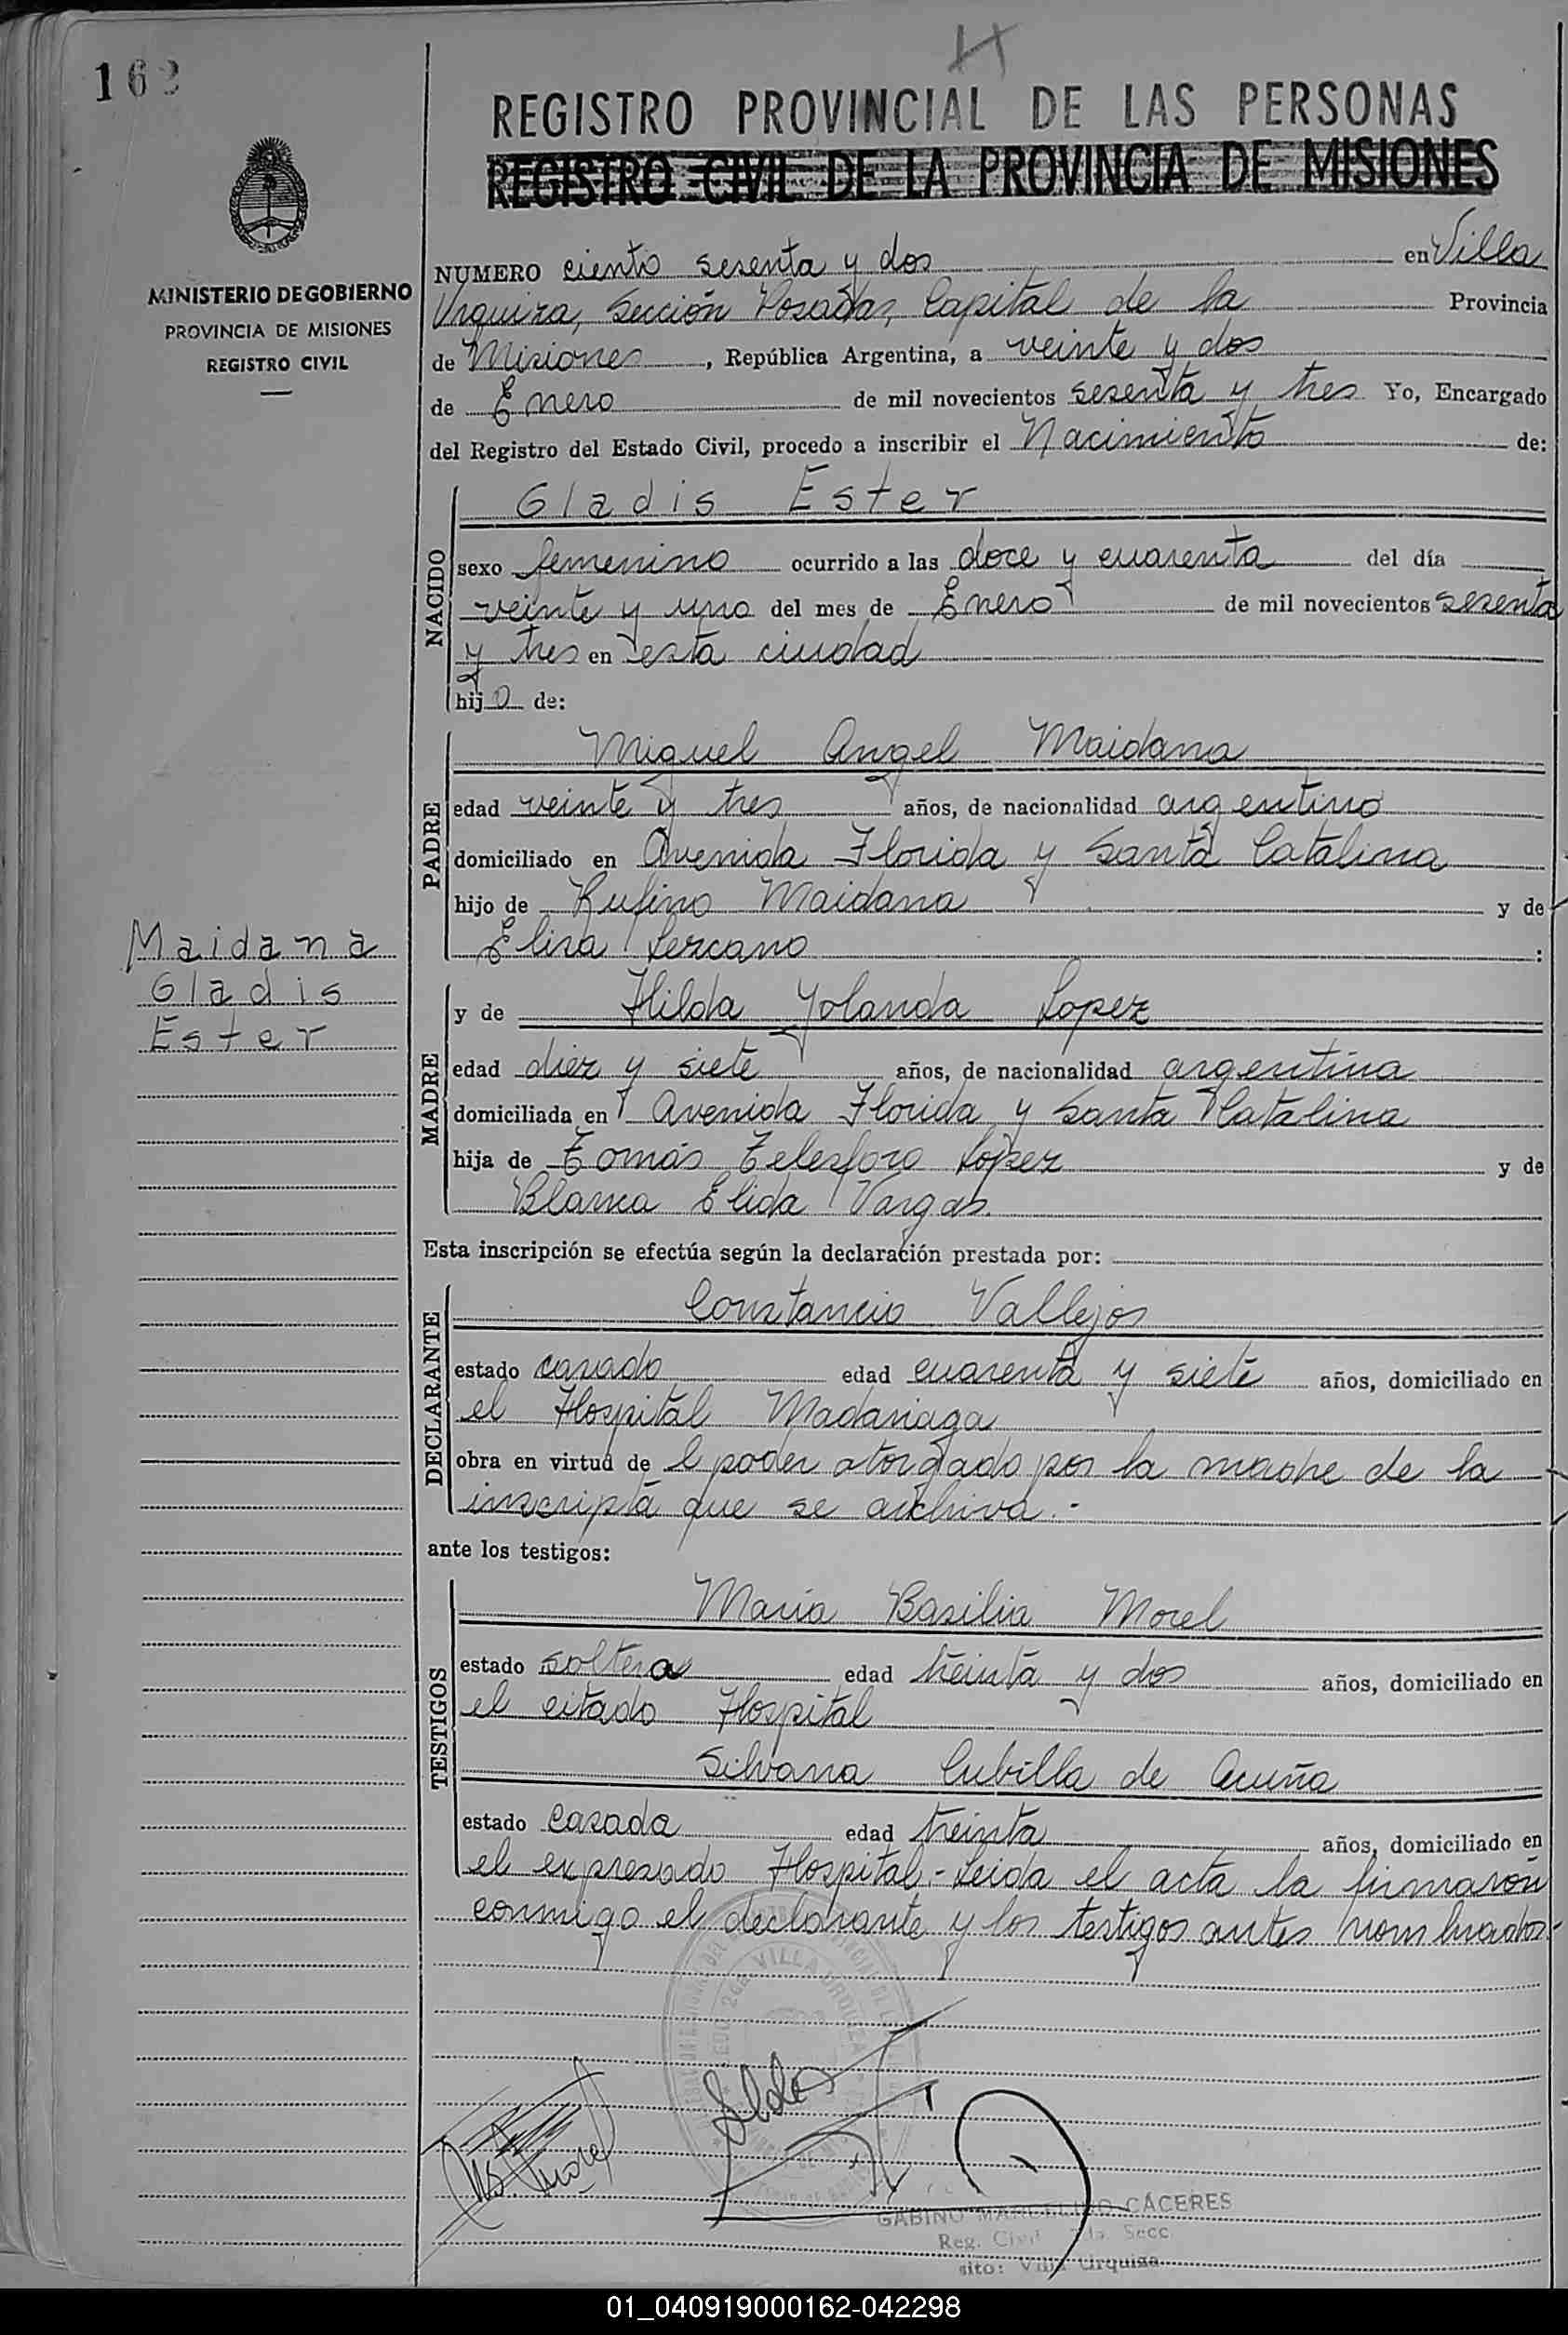 162
REGISTRO PROVINCIAL DE LAS PERSONAS
REGISTRO CIVIL DE LA PROVINCIA DE MISIONES
MINISTERIO DE GOBIERNO
PROVINCIA DE MISIONES
REGISTRO CIVIL
NUMERO ciento sesenta y dos en Villa
Urquiza, Sección Posadas, Capital de la Provincia
de Misiones, República Argentina, a veinte y dos
de Enero de mil novecientos sesenta y tres Yo, Encargado
del Registro del Estado Civil, procedo a inscribir el Nacimiento de:
NACIDO
Gladis Ester
sexo femenino ocurrido a las doce y cuarenta del día
veinte y uno del mes de Enero de mil novecientos sesenta
y tres en esta ciudad
hija de:
PADRE
Miguel Angel Maidana
edad veinte y tres años, de nacionalidad argentino
domiciliado en Avenida Florida y Santa Catalina
hijo de Rufino Maidana y de
Elisa Lezcano :
Maidana
Gladis
Ester
MADRE
y de Hilda Yolanda Lopez
edad diez y siete años, de nacionalidad argentina
domiciliada en Avenida Florida y Santa Catalina
hija de Tomás Telesforo López y de
Blanca Elida Vargas.
Esta inscripción se efectúa según la declaración prestada por:
DECLARANTE
Constancio Vallejos
estado casado edad cuarenta y siete años, domiciliado en
el Hospital Madariaga
obra en virtud de l poder otorgado por la madre de la
inscripta que se archiva.-
ante los testigos:
TESTIGOS
María Basilia Morel
estado soltera edad treinta y dos años, domiciliado en
el citado Hospital
Silvana Cubilla de Acuña
estado casada edad treinta años, domiciliado en
el expresado Hospital.- Leida el acta la firmaron
conmigo el declarante y los testigos antes nombrados.-
VILLA URQUIZA
M.B. Morel
GABINO MARCELINO CÁCERES
Reg. Civil 2da. Secc.
sito: Villa Urquiza
01_040919000162-042298